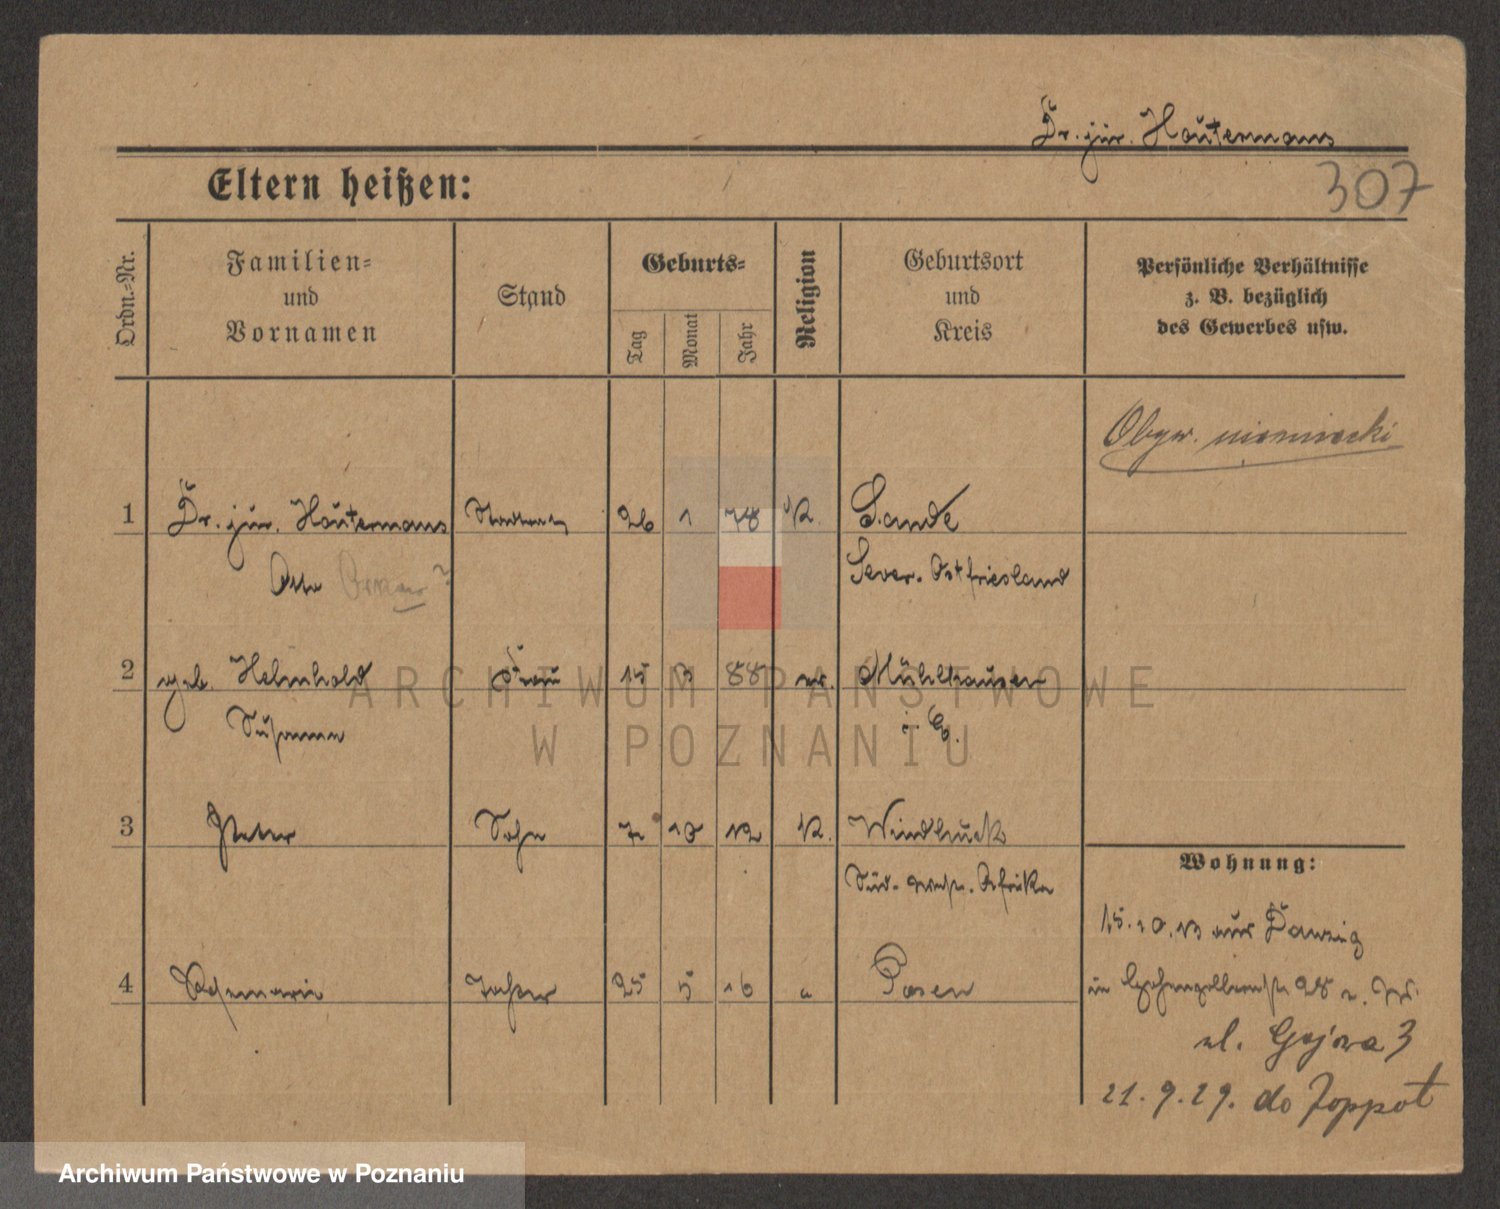 Dr. jur. Houtermans
307
Eltern heißen:
Ordn.=Nr.
Familien=
und
Vornamen
Stand
Geburts=
Tag
Monat
Jahr
Religion
Geburtsort
und
Kreis
Persönliche Verhältnisse
z. B. bezüglich
des Gewerbes usw.
Obyw. niemiecki
1 Dr. jur. Houtermans Stadtrat 26 1 78 K. Sande
Otto Jever. Ostfriesland
2 geb. Helmhold Frau 15 3 88 ev. Mühlhausen
Susanna
3 Peter Sohn 7 10 12 K. Windhuck
Süd-west-Afrika
Wohnung:
15.10.13 aus Danzig
4 Rosemarie Tochter 25 5 16 " Posen
in Hohenzollernstr 28
ul. Gajowa 3
21.9.29. do Zoppot
ARCHIWUM PAŃSTWOWE
W POZNANIU
Archiwum Państwowe w Poznaniu